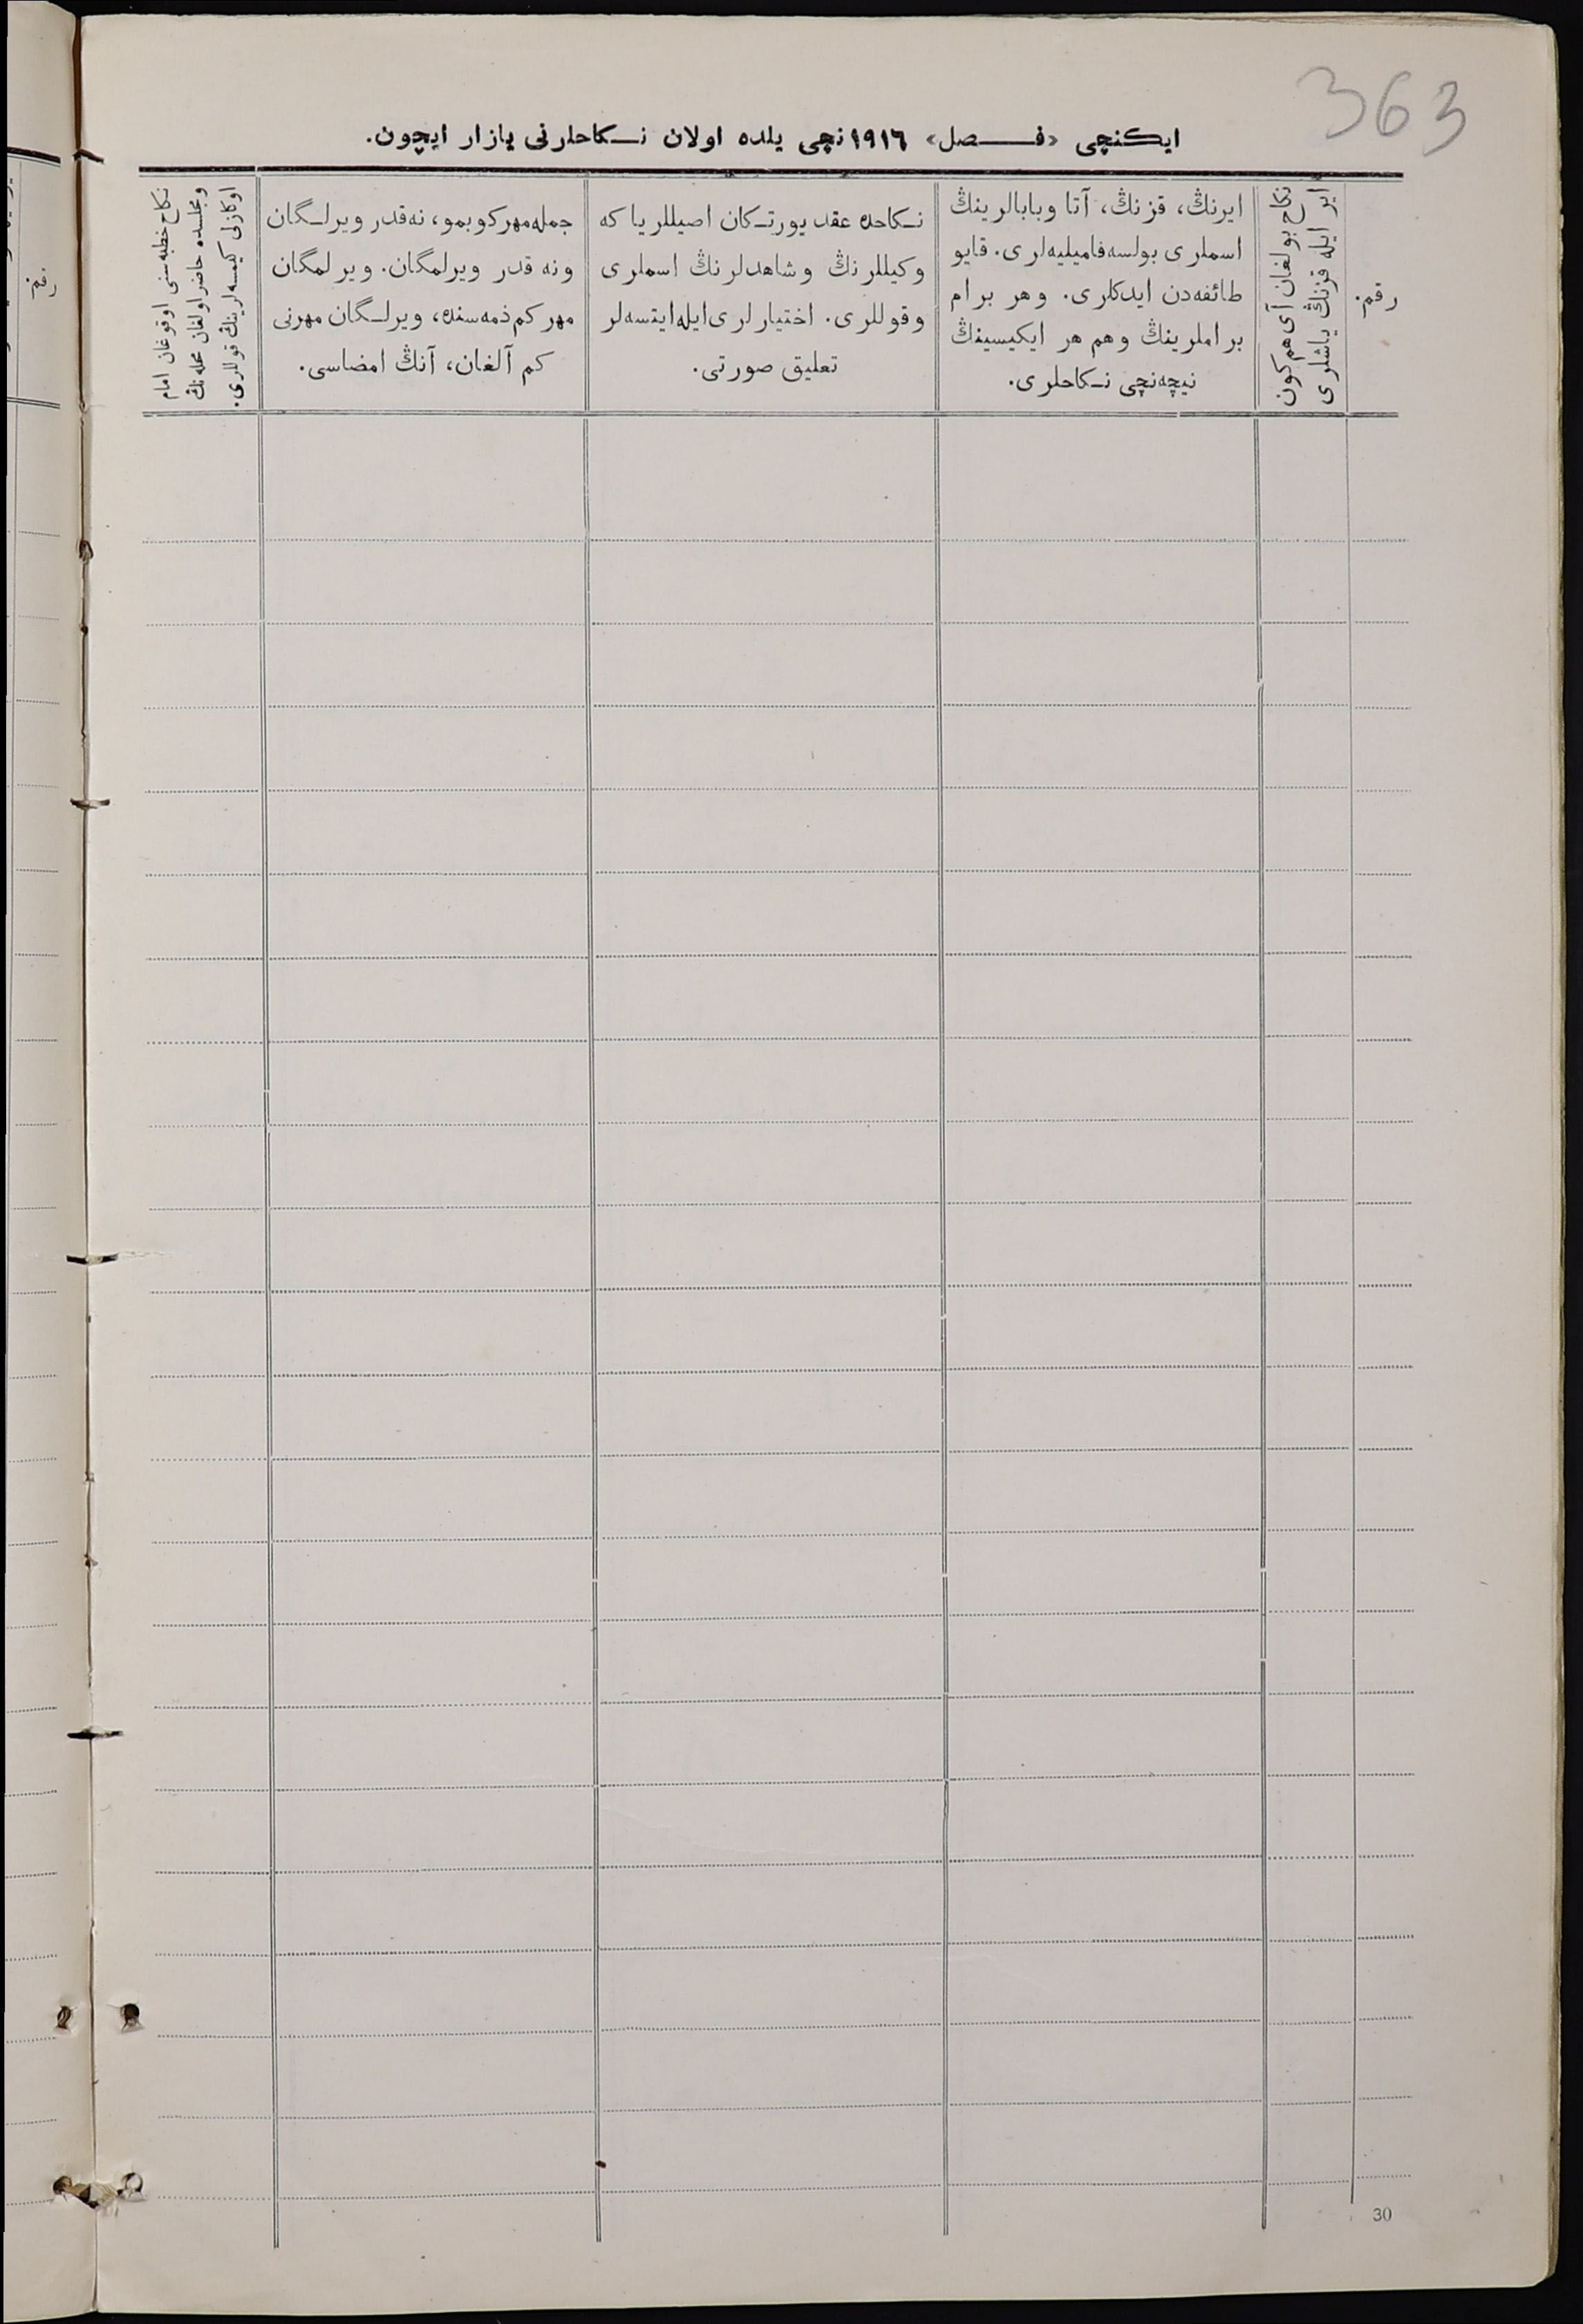 363
ایکنچی «فصل» ١٩١٦نچی یلده اولان نکاحلرنی یازار ایچون.
رقم.
نکاح بولغان آی هم کون
ایر ایله قزنڭ یاشلری
ایرنڭ، قزنڭ، آتا وبابالرینڭ
اسملری بولسه فامیلیه‌لری. قایو
طائفه‌دن ایدکلری. وهر برام
براملرینڭ وهم هر ایکیسینڭ
نیچه‌نچی نکاحلری.
نکاحده عقد یورتکان اصیللریا که
وکیللرنڭ وشاهدلرنڭ اسملری
وقوللری. اختیارلری ایله ایتسه‌لر
تعلیق صورتی.
جمله مهر کوبمو، نه‌قدر ویرلگان
ونه قدر ویرلمگان. ویرلمگان
مهر کم ذمه‌سنده، ویرلگان مهرنی
کم آلغان، آنڭ امضاسی.
نکاح خطبه‌سنی اوقوغان امام
ومجلسده حاضر اولغان محله‌نڭ
اوکازلی کیمسه‌لرینڭ قوللری.
رقم.
30